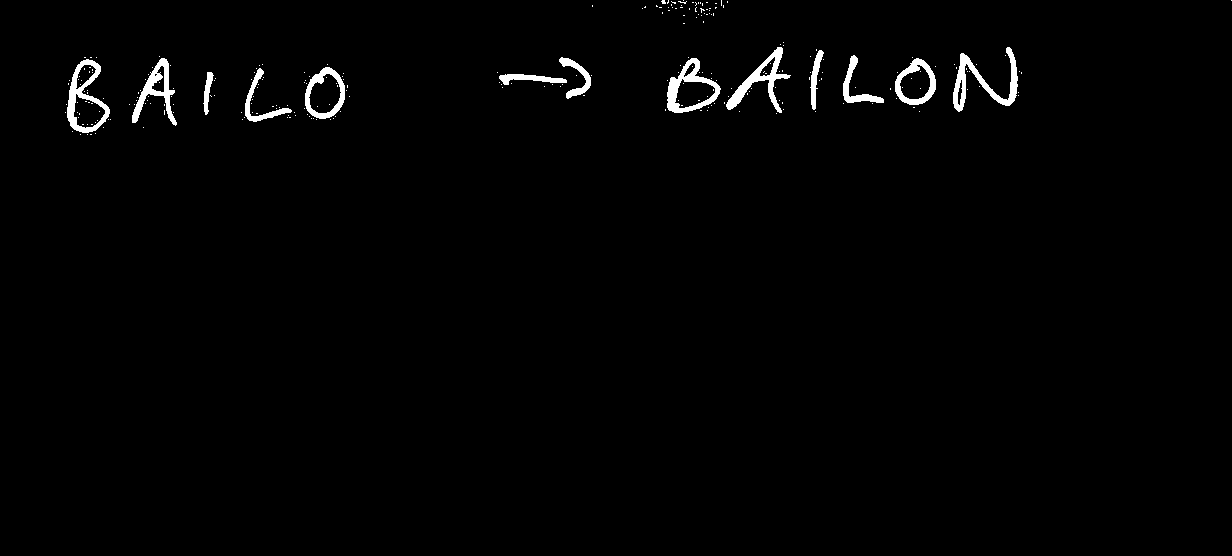 BAILO → BAILON